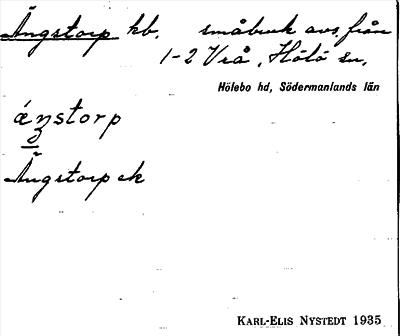 Ängstorp kb. småbruk avs. från
1-2 Vrå, Hölö sn,
Hölebo hd, Södermanlands län
áŋstorp
Ängstorp ek
KARL-ELIS NYSTEDT 1935